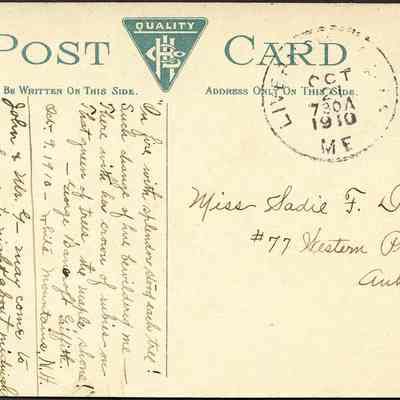 POST CARD
QUALITY
BE WRITTEN ON THIS SIDE.
ADDRESS ONLY ON THIS SIDE.
LIVER
OCT
21
730A
1910
ME
"On fire with splendor stood each tree!
Such change of hue bewildered me —
There with her crown of rubies on
That queen of trees, the maple shone!"
— George Bancroft Griffith.
Oct. 9, 1910 — White Mountains, N.H.
John & Mrs. G — may come to
Miss Sadie F. D
#77 Western P
Aub